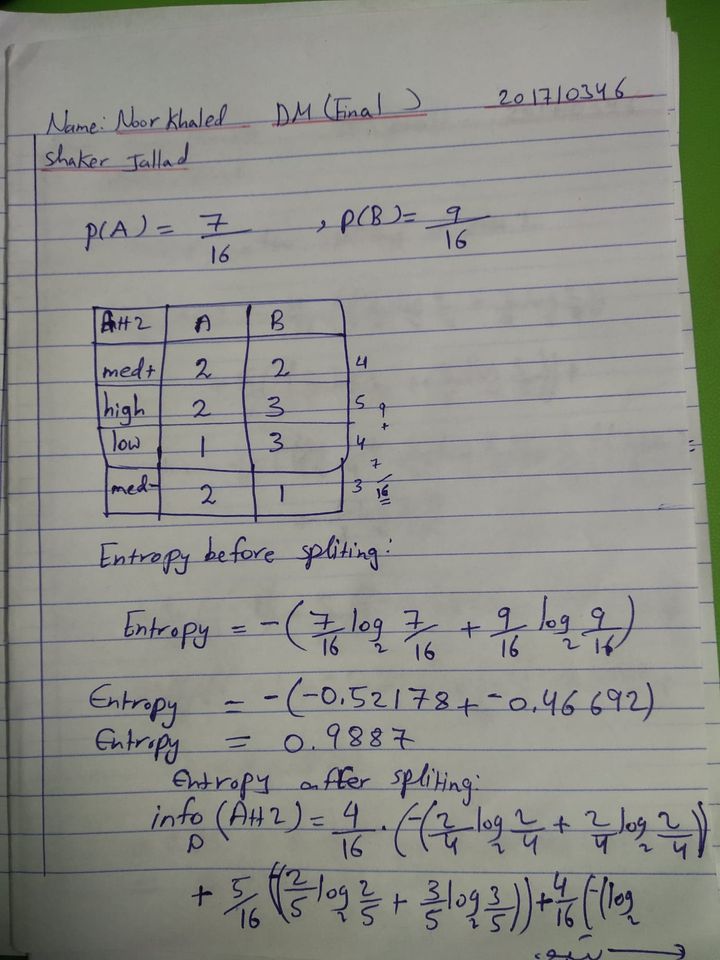 Name: Noor Khaled DM (Final) 201710346
Shaker Jallad
P(A) = 7/16 , P(B) = 9/16
Att2 A B
med+ 2 2 4
high 2 3 5
low 1 3 4
med- 2 1 3
9 + 7 / 16
Entropy before spliting:
Entropy = -(7/16 log₂ 7/16 + 9/16 log₂ 9/16)
Entropy = -(-0.52178 + -0.46692)
Entropy = 0.9887
Entropy after spliting:
info_D (Att2) = 4/16 . (-(2/4 log₂ 2/4 + 2/4 log₂ 2/4))
+ 5/16 (-(2/5 log₂ 2/5 + 3/5 log₂ 3/5)) + 4/16 (-(log₂